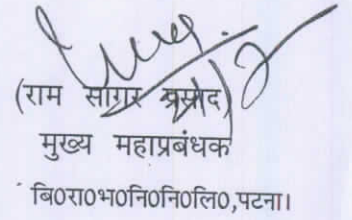 (राम सागर प्रसाद)
मुख्य महाप्रबंधक
बि0रा0भ0नि0नि0लि0,पटना।